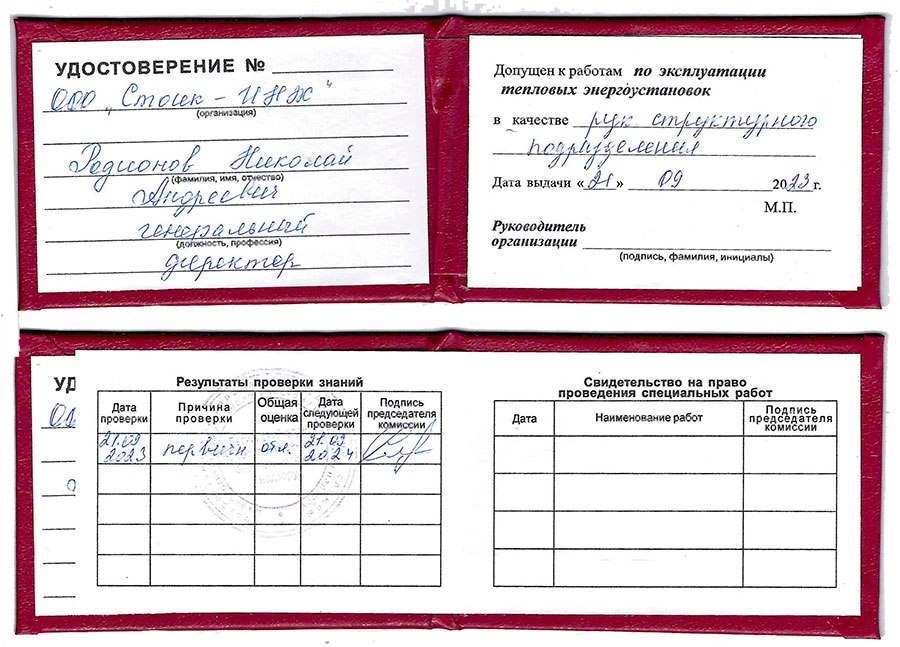 УДОСТОВЕРЕНИЕ №
ООО „Стоик – ИНЖ"
(организация)
Родионов Николай
(фамилия, имя, отчество)
Андреевич
генеральный
(должность, профессия)
директор
Допущен к работам по эксплуатации
тепловых энергоустановок
в качестве рук структурного
подразделения
Дата выдачи « 21 » 09 2023 г.
М.П.
Руководитель
организации
(подпись, фамилия, инициалы)
УД
Результаты проверки знаний
Дата проверки Причина проверки Общая оценка Дата следующей проверки Подпись председателя комиссии
21.09 2023 первичн отл. 21.09 2024
Свидетельство на право
проведения специальных работ
Дата Наименование работ Подпись председателя комиссии